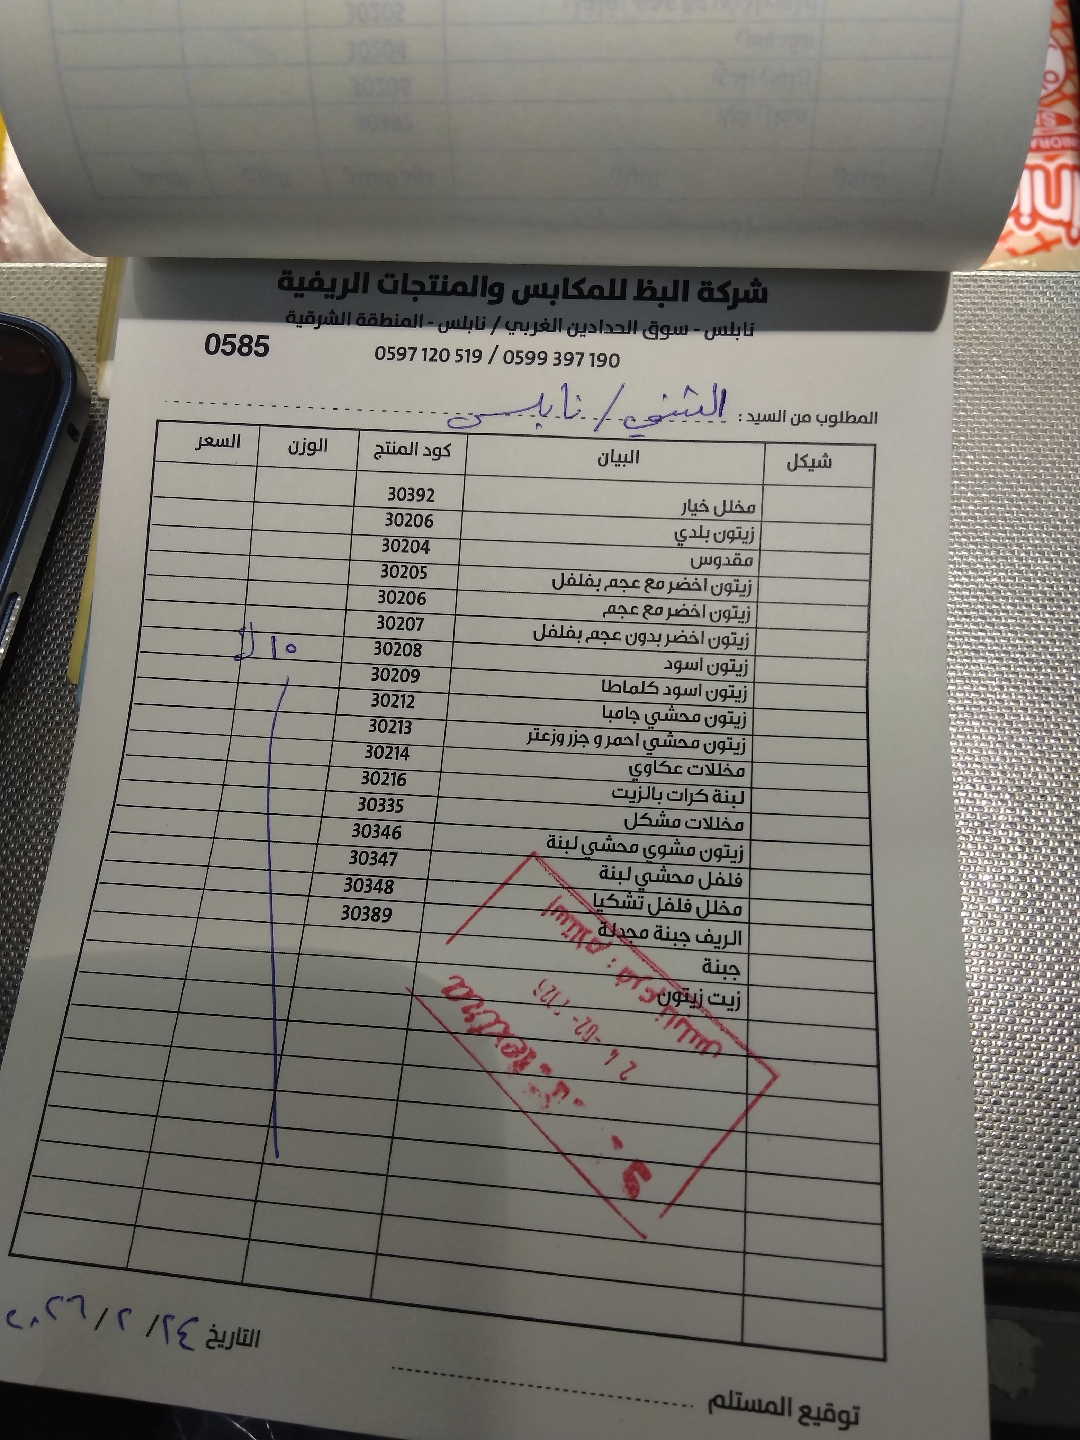 شركة البظ للمكابس والمنتجات الريفية
نابلس - سوق الحدادين الغربي / نابلس - المنطقة الشرقية
0597 120 519 / 0599 397 190
0585
المطلوب من السيد: / نابلس
شيكل البيان كود المنتج الوزن السعر
مخلل خيار 30392
زيتون بلدي 30206
مقدوس 30204
زيتون اخضر مع عجم بفلفل 30205
زيتون اخضر مع عجم 30206
زيتون اخضر بدون عجم بفلفل 30207
زيتون اسود 30208 ١٠ ك
زيتون اسود كلماطا 30209
زيتون محشي جامبا 30212
زيتون محشي احمر و جزر وزعتر 30213
مخللات عكاوي 30214
لبنة كرات بالزيت 30216
مخللات مشكل 30335
زيتون مشوي محشي لبنة 30346
فلفل محشي لبنة 30347
مخلل فلفل تشكيا 30348
الريف جبنة مجدلة 30389
جبنة
زيت زيتون
استلام: فرع نابلس
التاريخ
توقيع المستلم